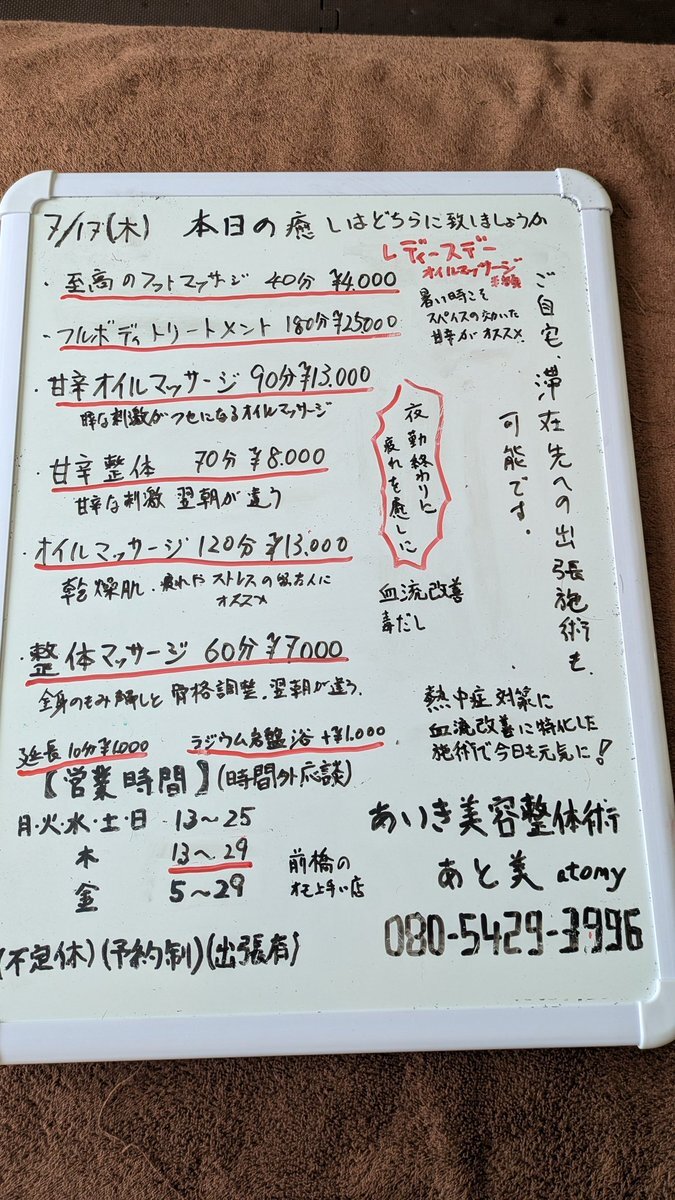 7/17(木) 本日の癒しはどちらに致しましょうか
・至高のフットマッサージ 40分 ¥4.000
・フルボディトリートメント 180分¥25000
・甘辛オイルマッサージ 90分¥13.000
粋な刺激がクセになるオイルマッサージ
・甘辛整体 70分 ¥8.000
甘辛な刺激 翌朝が違う
・オイルマッサージ 120分 ¥13.000
乾燥肌、疲れやストレスの
オススメ
・整体マッサージ 60分 ¥7000
全身のもみ解しと骨格調整。翌朝が違う。
延長10分¥1.000 ラジウム岩盤浴 +¥1.000
レディースデー
オイルマッサージ
暑い時こそ
スパイスの効いた
甘辛がオススメ
夜勤終わりに
疲れを癒しに
血流改善
毒だし
ご自宅、滞在先への出張施術も
可能です。
熱中症対策に
血流改善に特化した
施術で今日も元気に!
【営業時間】(時間外応談)
月・火・水・土・日 13～25
木 13～29
金 5～29
前橋の
オモ上手い店
(不定休)(予約制)(出張有)
あいき美容整体術
あと美 atomy
080-5429-3996